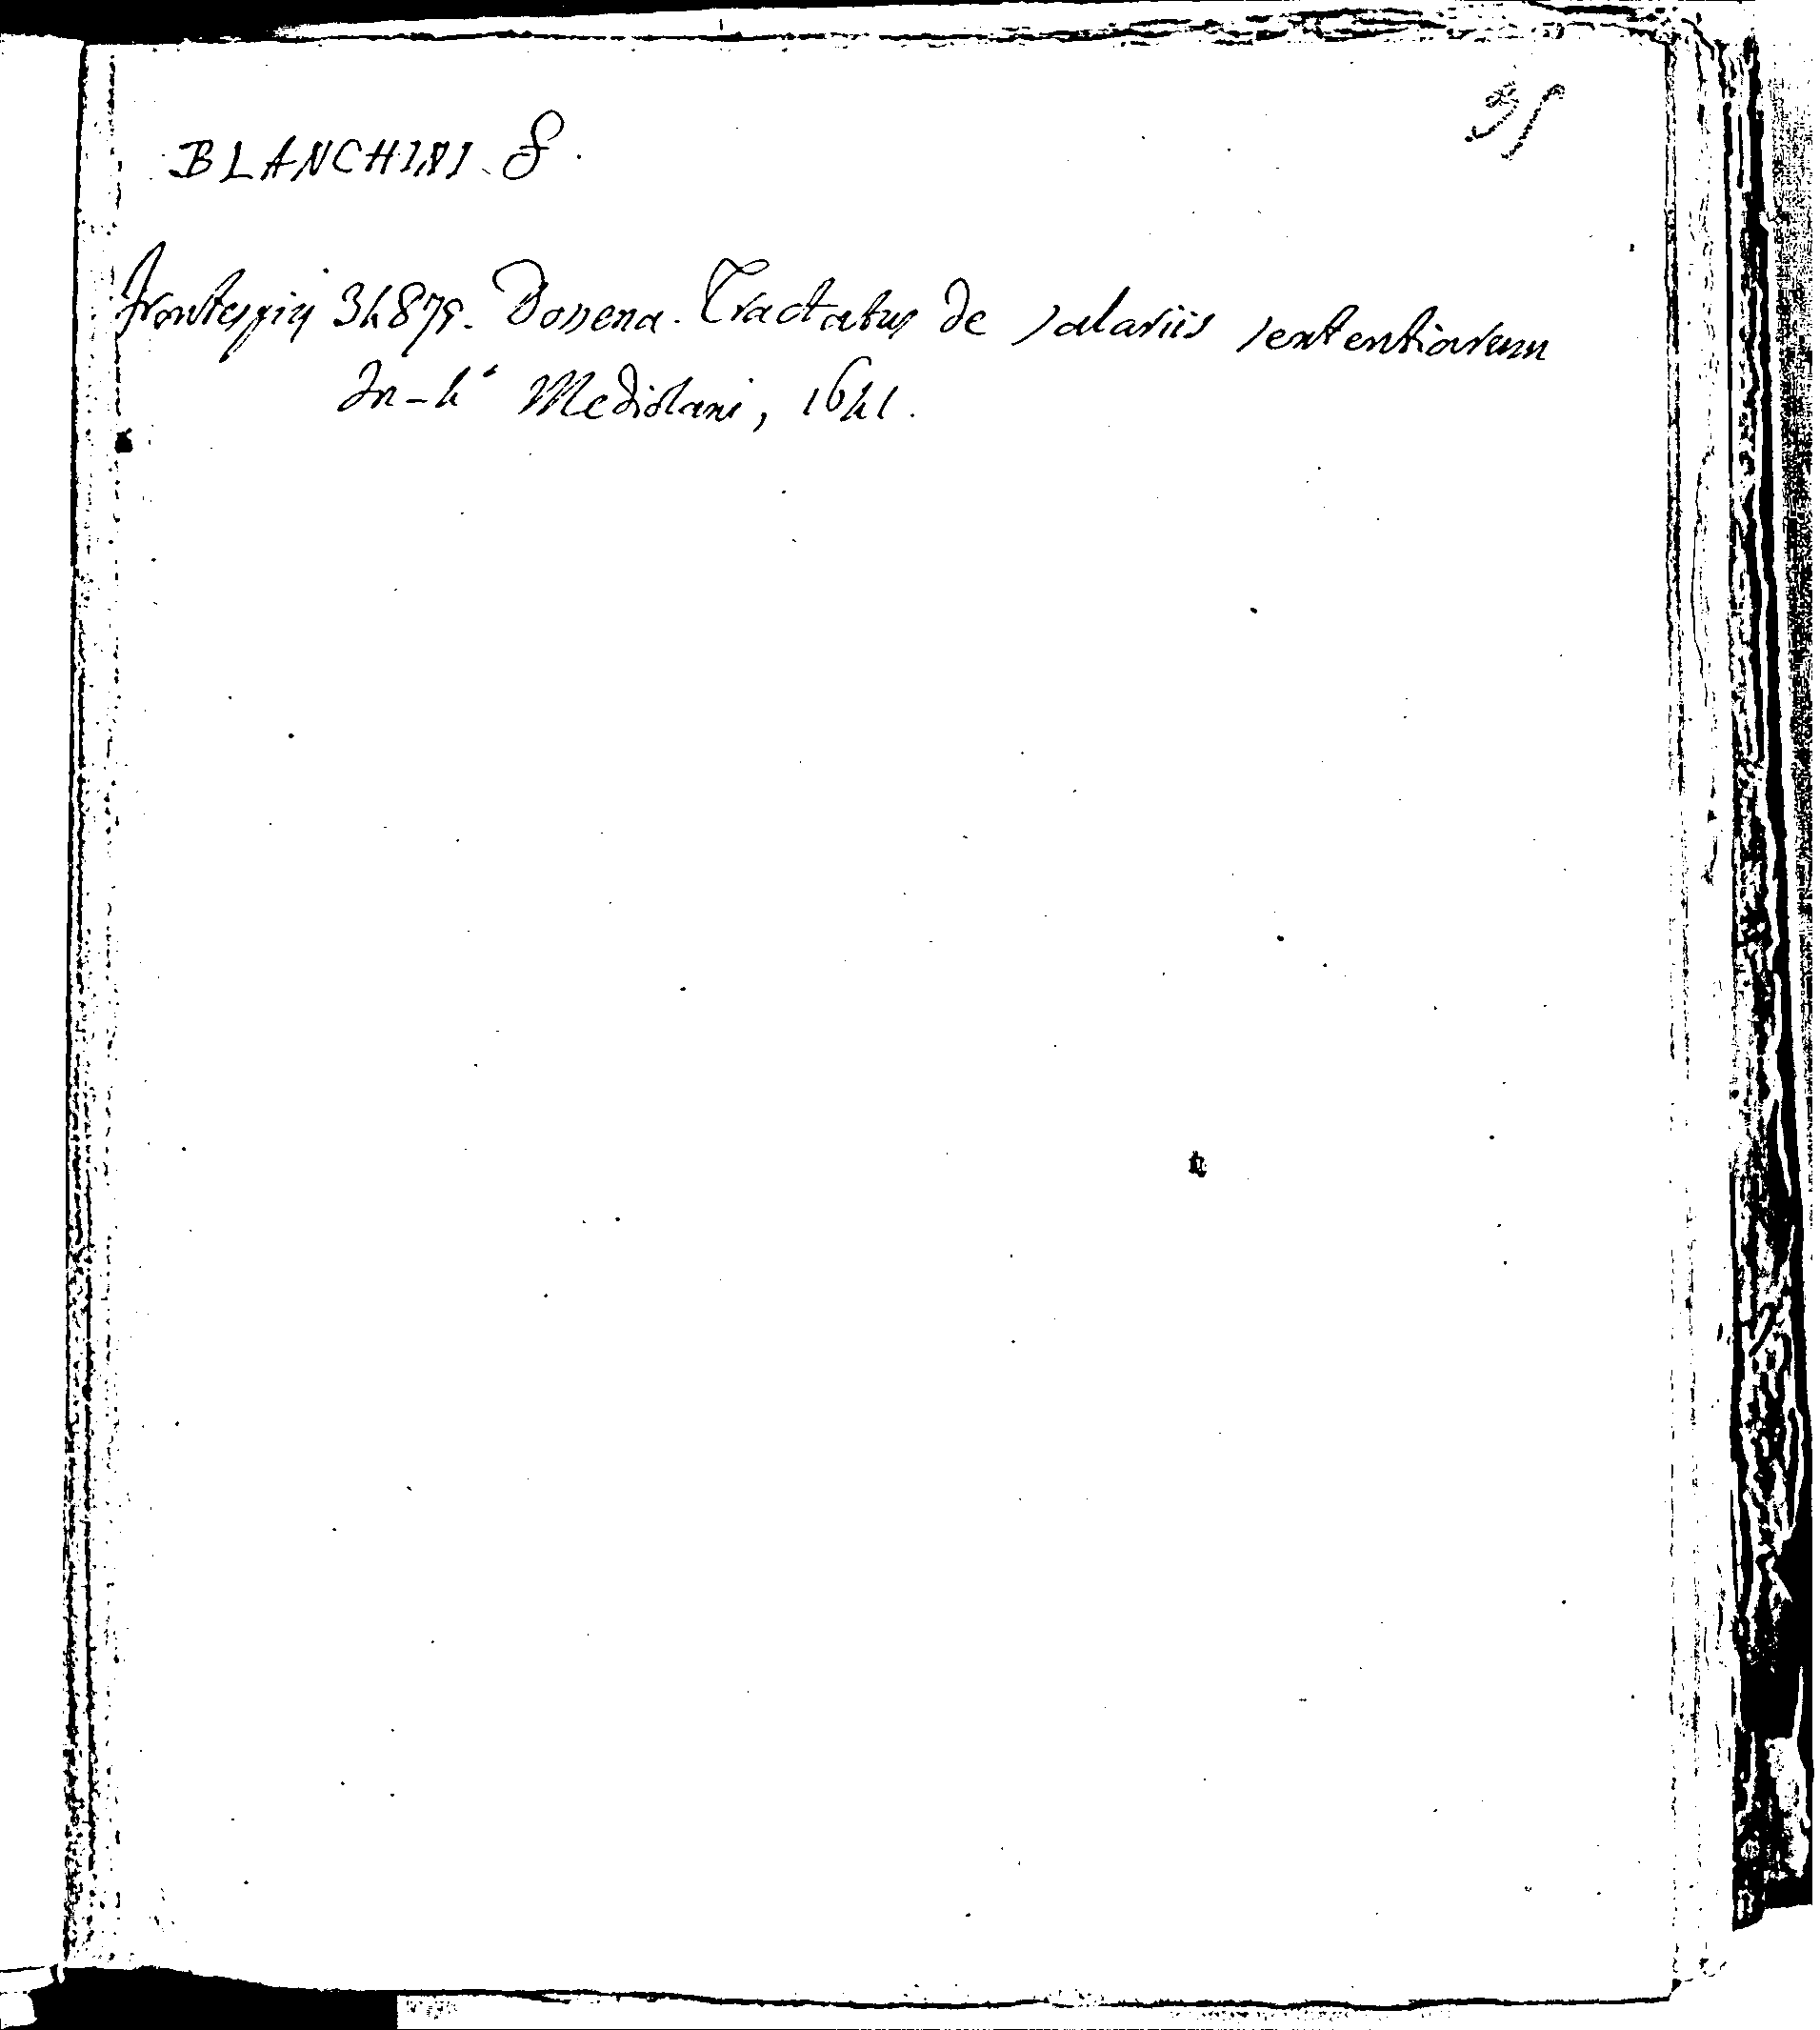 35
BLANCHINI
Frontespiij 34879. Dossena. Tractatus de salariis sententiarum
In-4° Mediolani, 1641.